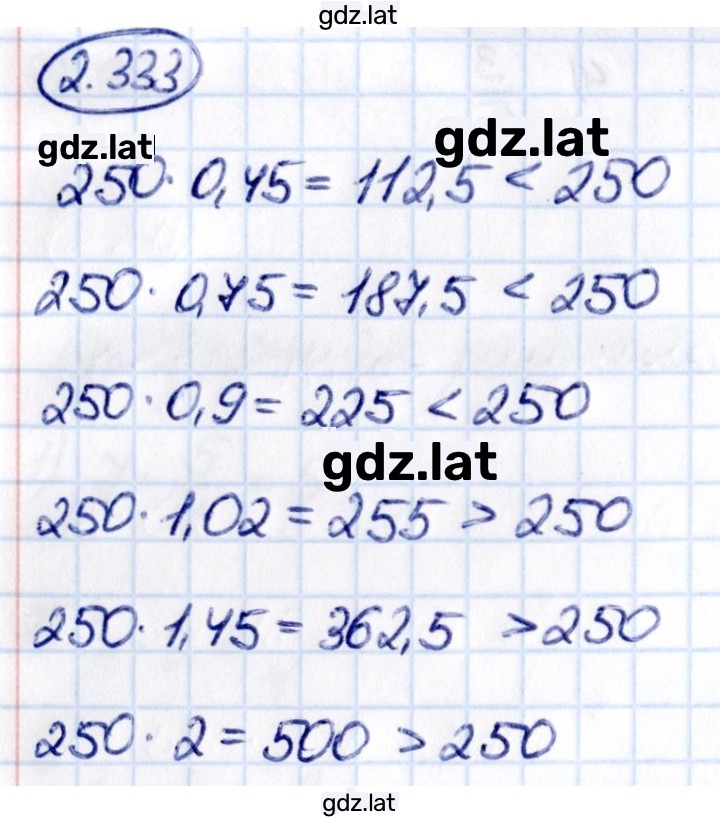 gdz.lat
2.333
gdz.lat
gdz.lat
250 · 0,45 = 112,5 < 250
250 · 0,75 = 187,5 < 250
250 · 0,9 = 225 < 250
gdz.lat
250 · 1,02 = 255 > 250
250 · 1,45 = 362,5 > 250
250 · 2 = 500 > 250
gdz.lat